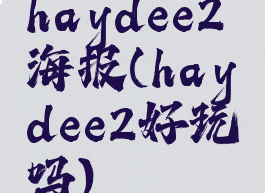 haydee2
海报(hay
dee2好玩
吗)